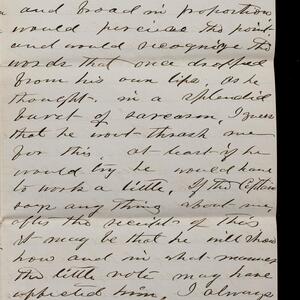 and broad in proportion
would perceive the point
and would recognize the
words that once dropped
from his own lips, as he
thought, in a splendid
burst of sarcasm, I guess
that he wont thrash me
for this, at least if he
would try he would have
to work a little, If the Captain
says any thing about me,
after the receipt of this
it may be that he will show
how and in what manner
the little note may have
affected him, I always